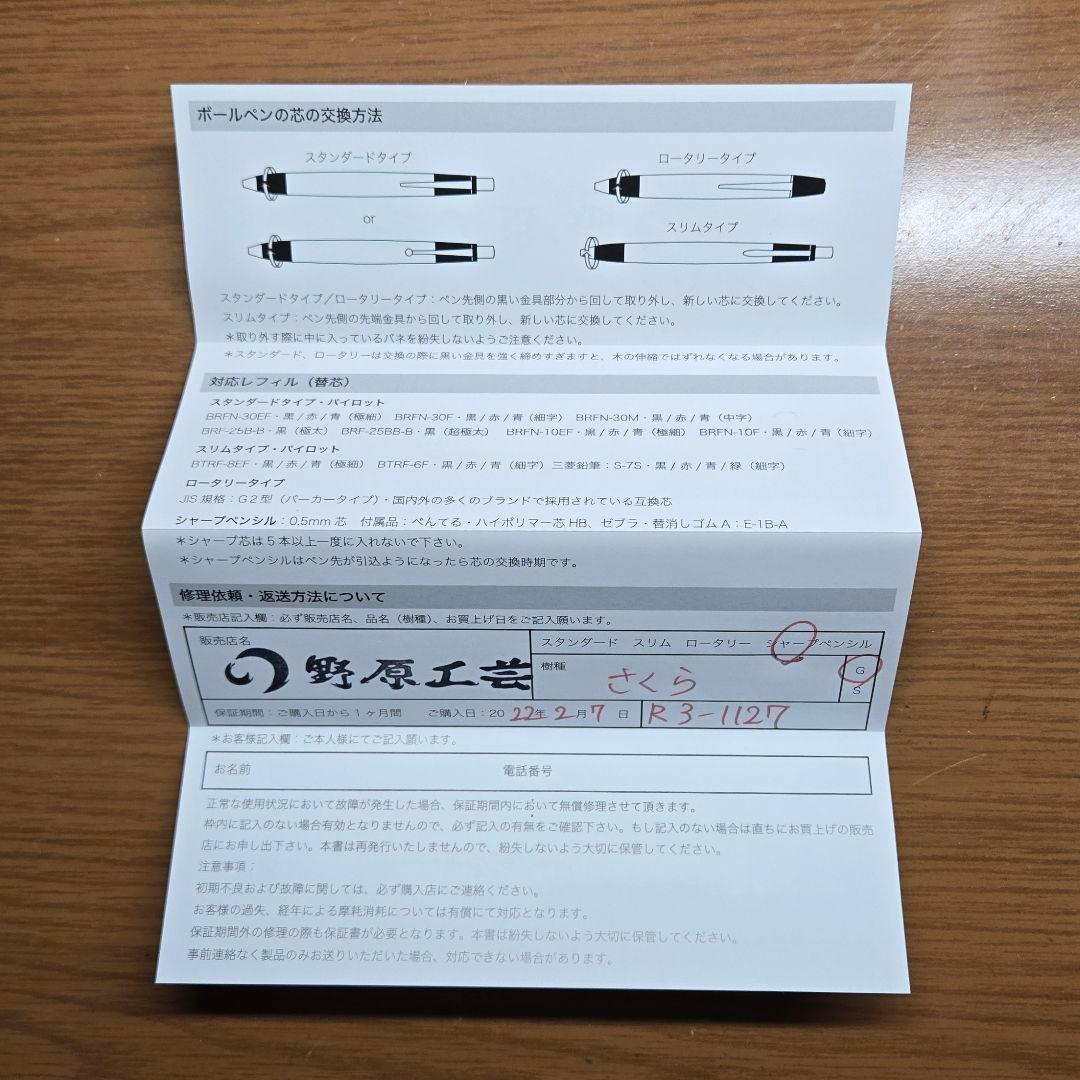 ボールペンの芯の交換方法
スタンダードタイプ
ロータリータイプ
or
スリムタイプ
スタンダードタイプ／ロータリータイプ：ペン先側の黒い金具部分から回して取り外し、新しい芯に交換してください。
スリムタイプ：ペン先側の先端金具から回して取り外し、新しい芯に交換してください。
＊取り外す際に中に入っているバネを紛失しないようご注意ください。
＊スタンダード、ロータリーは交換の際に黒い金具を強く締めすぎますと、木の伸縮ではずれなくなる場合があります。
対応レフィル（替芯）
スタンダードタイプ・パイロット
BRFN-30EF・黒/赤/青（極細） BRFN-30F・黒/赤/青（細字） BRFN-30M・黒/赤/青（中字）
BRF-25B-B・黒（極太） BRF-25BB-B・黒（超極太） BRFN-10EF・黒/赤/青（極細） BRFN-10F・黒/赤/青（細字）
スリムタイプ・パイロット
BTRF-8EF・黒/赤/青（極細） BTRF-6F・黒/赤/青（細字）三菱鉛筆：S-7S・黒/赤/青/緑（細字）
ロータリータイプ
JIS規格：G2型（パーカータイプ）・国内外の多くのブランドで採用されている互換芯
シャープペンシル：0.5mm芯 付属品：ぺんてる・ハイポリマー芯HB、ゼブラ・替消しゴムA：E-1B-A
＊シャープ芯は5本以上一度に入れないで下さい。
＊シャープペンシルはペン先が引込ようになったら芯の交換時期です。
修理依頼・返送方法について
＊販売店記入欄：必ず販売店名、品名（樹種）、お買上げ日をご記入願います。
販売店名
野原工芸
スタンダード スリム ロータリー シャープペンシル
樹種
さくら
G
S
保証期間：ご購入日から1ヶ月間 ご購入日：2022年2月7日
R3-1127
＊お客様記入欄：ご本人様にてご記入願います。
お名前 電話番号
正常な使用状況において故障が発生した場合、保証期間内において無償修理させて頂きます。
枠内に記入のない場合有効となりませんので、必ず記入の有無をご確認下さい。もし記入のない場合は直ちにお買上げの販売
店にお申し出下さい。本書は再発行いたしませんので、紛失しないよう大切に保管してください。
注意事項：
初期不良および故障に関しては、必ず購入店にご連絡ください。
お客様の過失、経年による摩耗消耗については有償にて対応となります。
保証期間外の修理の際も保証書が必要となります。本書は紛失しないよう大切に保管してください。
事前連絡なく製品のみお送りいただいた場合、対応できない場合があります。